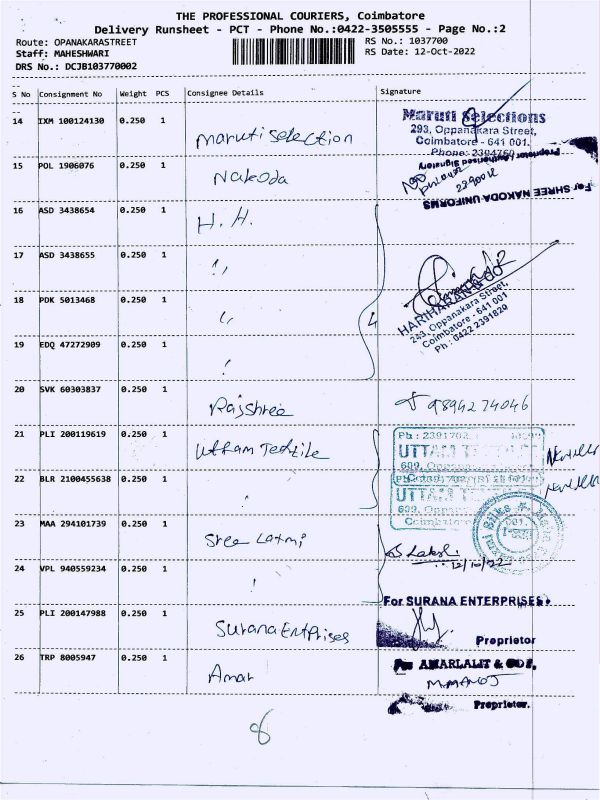 THE PROFESSIONAL COURIERS, Coimbatore
Delivery Runsheet - PCT - Phone No.:0422-3505555 - Page No.:2
Route: OPANAKARASTREET RS No.: 1037700
Staff: MAHESHWARI RS Date: 12-Oct-2022
DRS No.: DCJB103770002
S No Consignment No Weight PCS Consignee Details Signature
14 IXM 100124130 0.250 1 Maruti Selection
Maruti Selections
293, Oppanakara Street,
Coimbatore - 641 001.
Phone: 2304760
15 POL 1906076 0.250 1 Nakoda
Proprietor / Authorised Signatory
For SHREE NAKODA UNIFORMS
16 ASD 3438654 0.250 1 H. H.
17 ASD 3438655 0.250 1 "
18 PDK 5013468 0.250 1 "
19 EDQ 47272909 0.250 1 "
4
HARIHARAN & CO
243, Oppanakara Street,
Coimbatore - 641 001
Ph : 0422 2391829
20 SVK 60303837 0.250 1 Rajshree
9894274046
21 PLI 200119619 0.250 1 Uttam Textile
Ph : 2391702
UTTAM
609, Oppan
22 BLR 2100455638 0.250 1 "
UTTAM
609, Oppan
Coimbatore
23 MAA 294101739 0.250 1 Sree Laxmi
Lakshi
12/10/22
24 VPL 940559234 0.250 1 "
25 PLI 200147988 0.250 1 Surana Entprises
For SURANA ENTERPRISES
Proprietor
26 TRP 8005947 0.250 1 Amar
For AMARLALIT & CO.,
M.MANOJ
Proprietor.
8